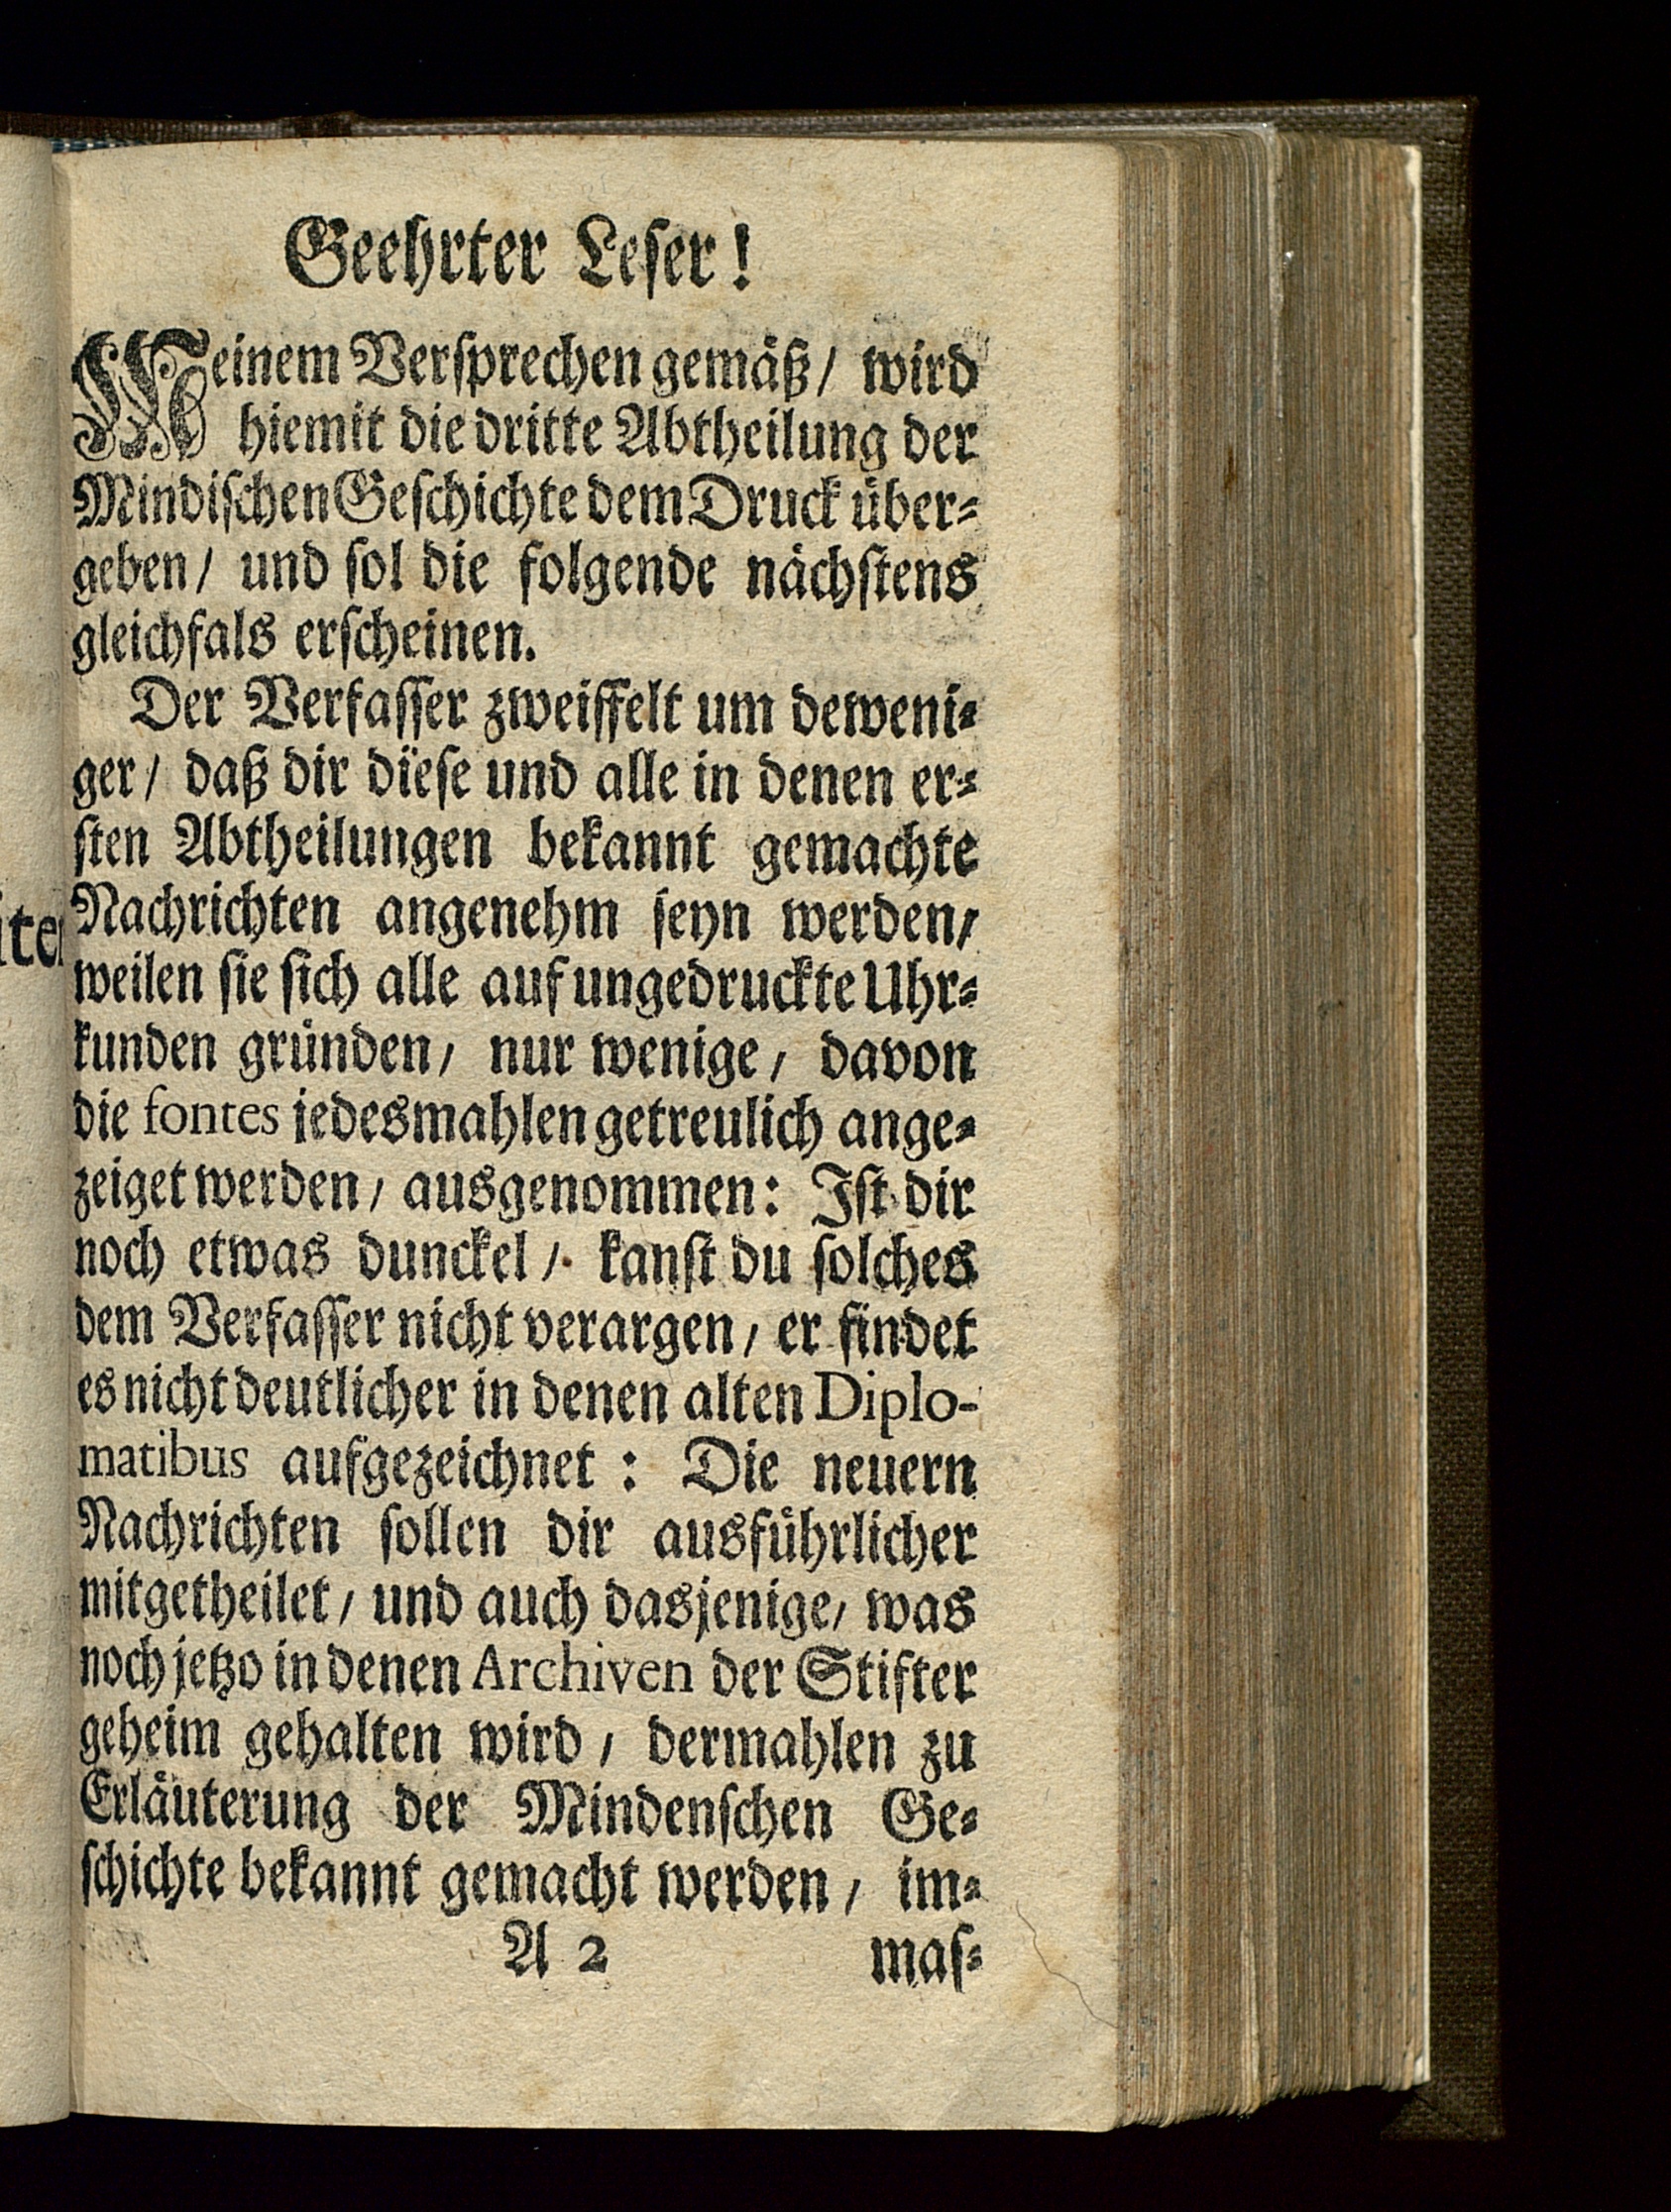 Geehrter Leſer!
Meinem Verſprechen gemäß/ wird
hiemit die dritte Abtheilung der
Mindiſchen Geſchichte dem Druck über⸗
geben/ und ſol die folgende nächſtens
gleichfals erſcheinen.
Der Verfaſſer zweiffelt um deweni⸗
ger/ daß dir dieſe und alle in denen er⸗
ſten Abtheilungen bekannt gemachte
Nachrichten angenehm ſeyn werden/
weilen ſie ſich alle auf ungedruckte Uhr⸗
kunden gründen/ nur wenige/ davon
die fontes jedesmahlen getreulich ange⸗
zeiget werden/ ausgenommen: Iſt dir
noch etwas dunckel/ kanſt du ſolches
dem Verfaſſer nicht verargen/ er findet
es nicht deutlicher in denen alten Diplo-
matibus aufgezeichnet: Die neuern
Nachrichten ſollen dir ausführlicher
mitgetheilet/ und auch dasjenige/ was
noch jetzo in denen Archiven der Stifter
geheim gehalten wird/ dermahlen zu
Erläuterung der Mindenſchen Ge⸗
ſchichte bekannt gemacht werden/ im⸗
A 2 maſ⸗